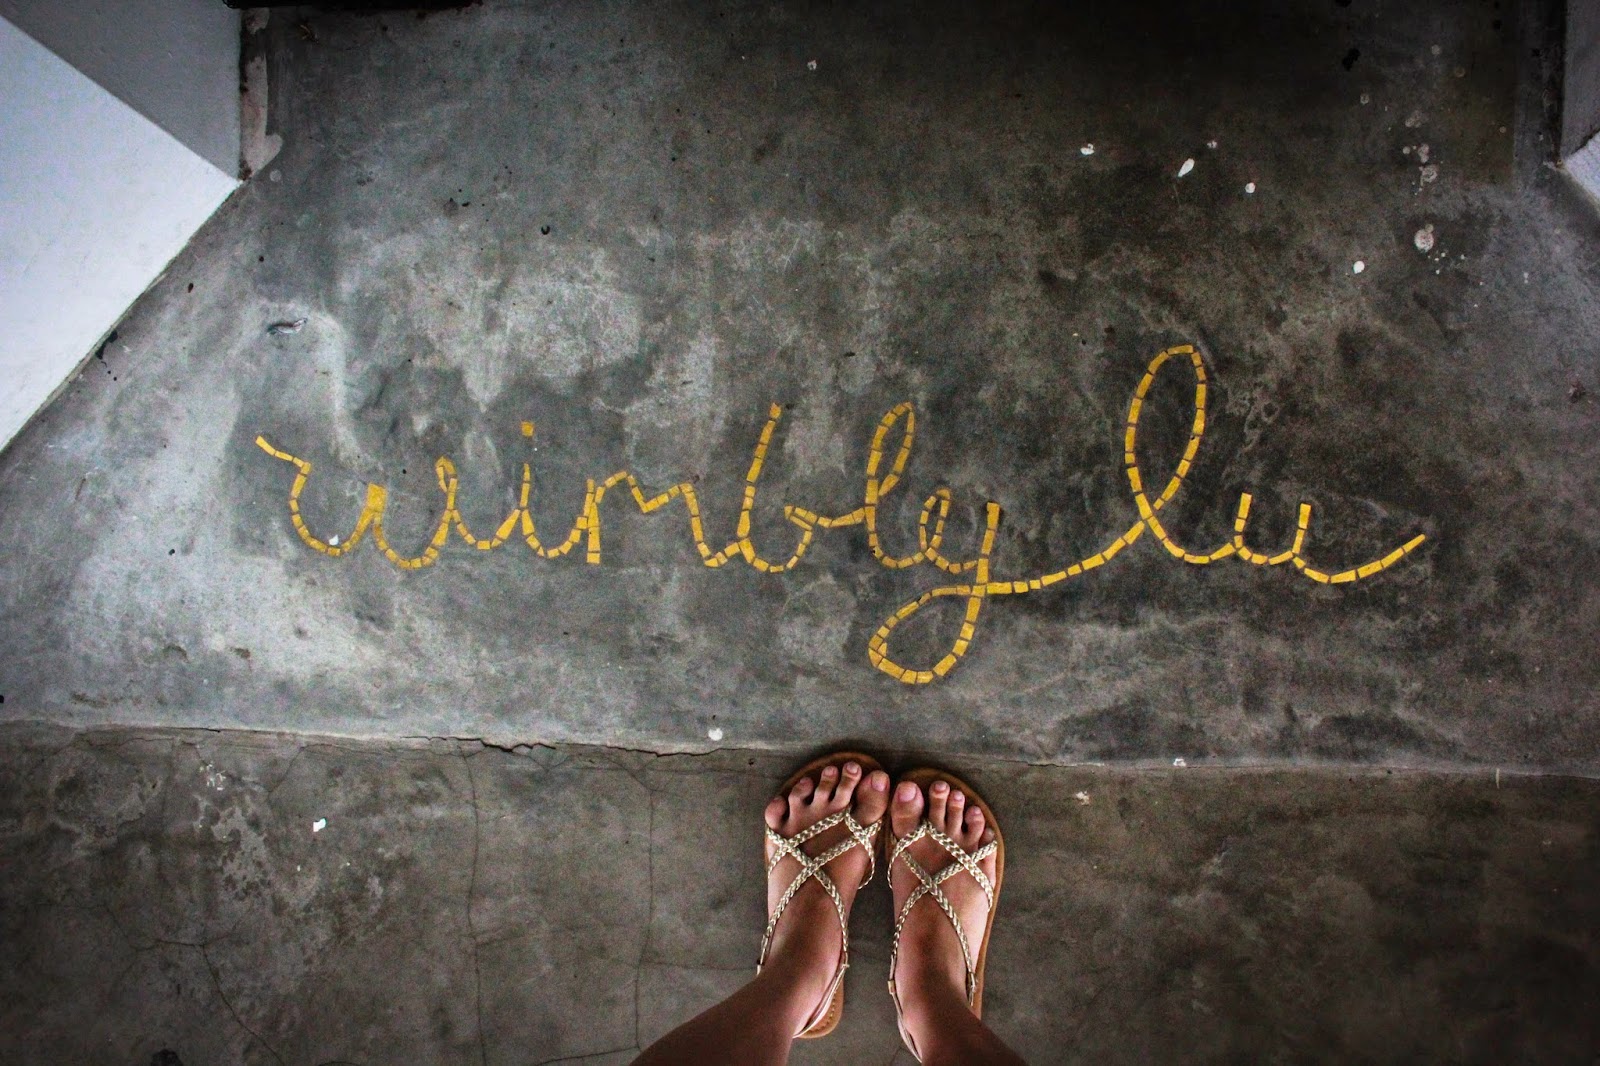 wimbly lu